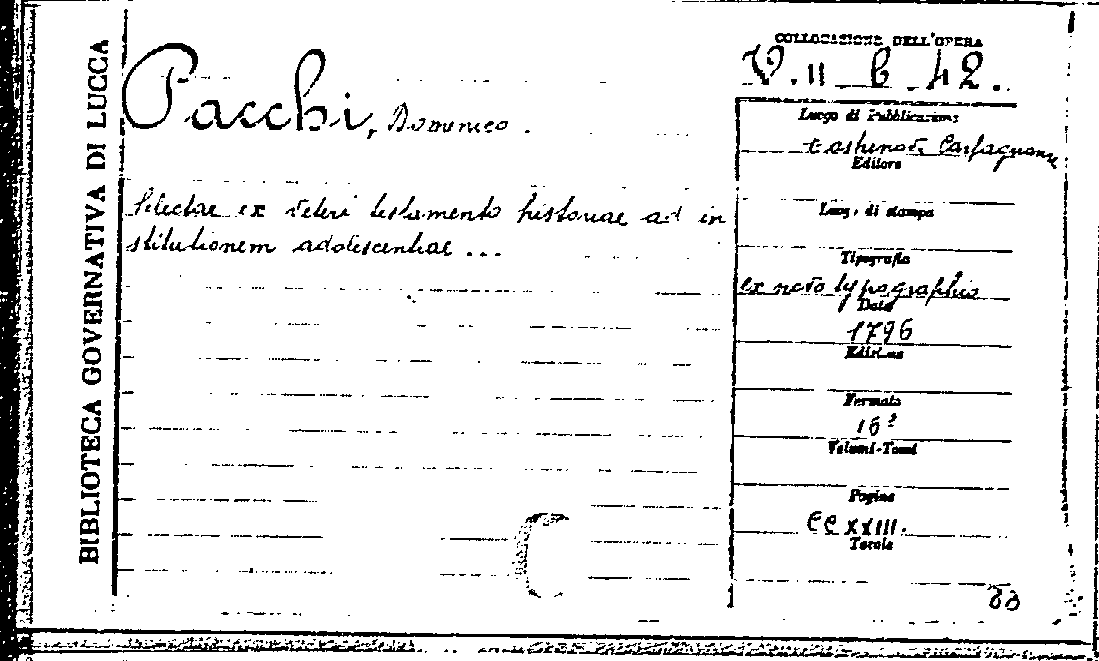 BIBLIOTECA GOVERNATIVA DI LUCCA
Pacchi, Domenico.
Selectae ex veteri testamento historiae ad in
stitutionem adolescentiae ...
COLLOCAZIONE DELL'OPERA
V. II b. 42.
Luogo di Pubblicazione
Garfagnana
Editore
Luog. di stampa
Tipografia
ex typographio
Data
1796
Edizione
Formato
16º
Volumi-Tomi
Pagine
CCXXIII.
Tavole